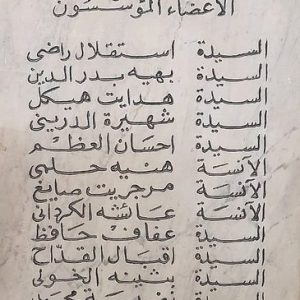 الأعضاء المؤسسون
السيدة استقلال راضى
السيدة بهيه بدر الدين
السيدة هدايت هيكل
السيدة شهيرة الدرينى
السيدة احسان العظم
الآنسة هنيه حلمى
الآنسة مرجريت صايغ
الآنسة عائشه الكردانى
السيدة عفاف حافظ
السيدة اقبال القداح
السيدة بثينه الخولى